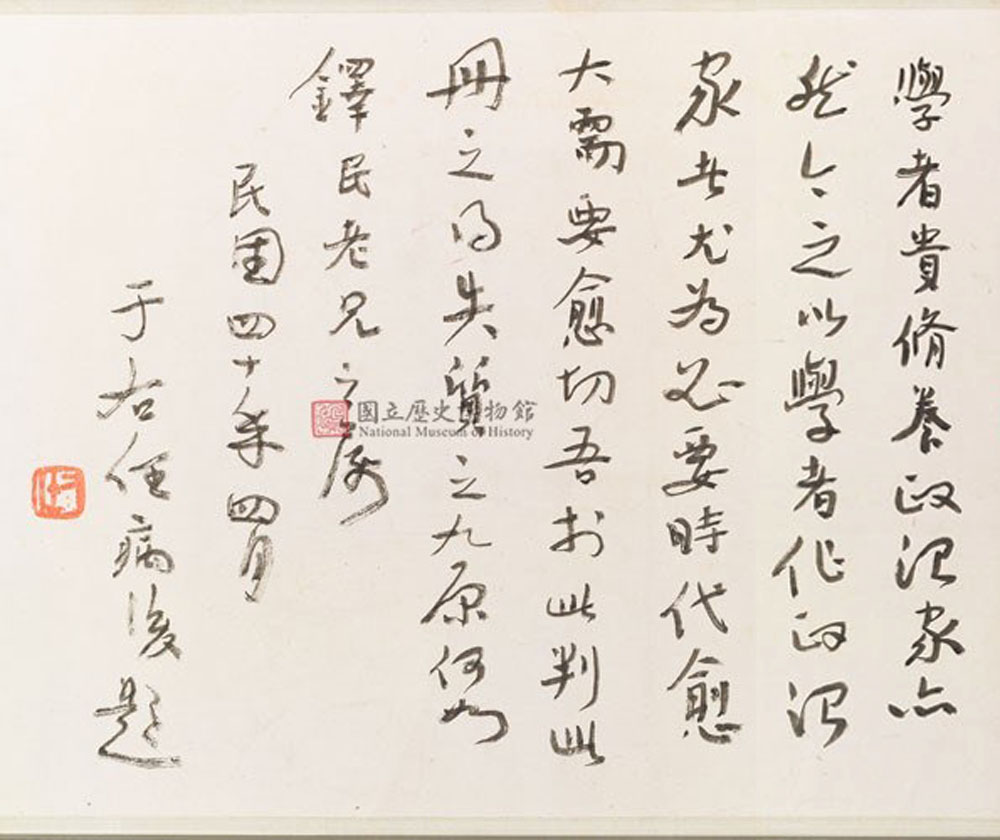 學者貴脩養政治家亦
然今之以學者作政治
家者尤為必要時代愈
大需要愈切吾於此判此
冊之得失質之九原何如
鐸民老兄之屬
民國四十年四月
于右任病後題
國立歷史博物館
National Museum of History